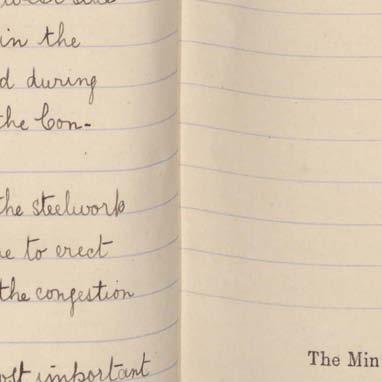 in the
d during
the Con-
the steelwork
e to erect
the congestion
ost important
The Min